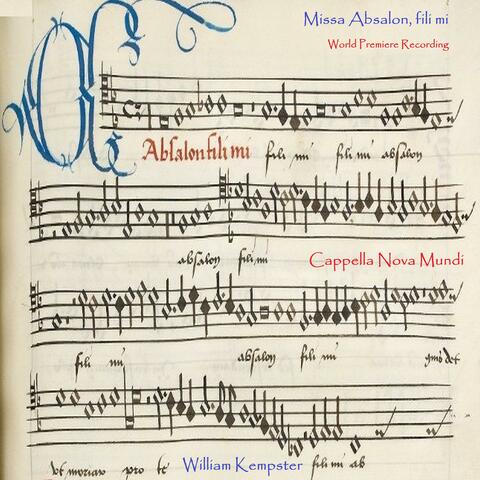 Missa Absalon, fili mi
World Premiere Recording
Absalon fili mi fili mi fili mi absalon
absalon fili mi
Cappella Nova Mundi
fili mi absalon fili mi quis det
vt moriar pro te fili mi ab
William Kempster